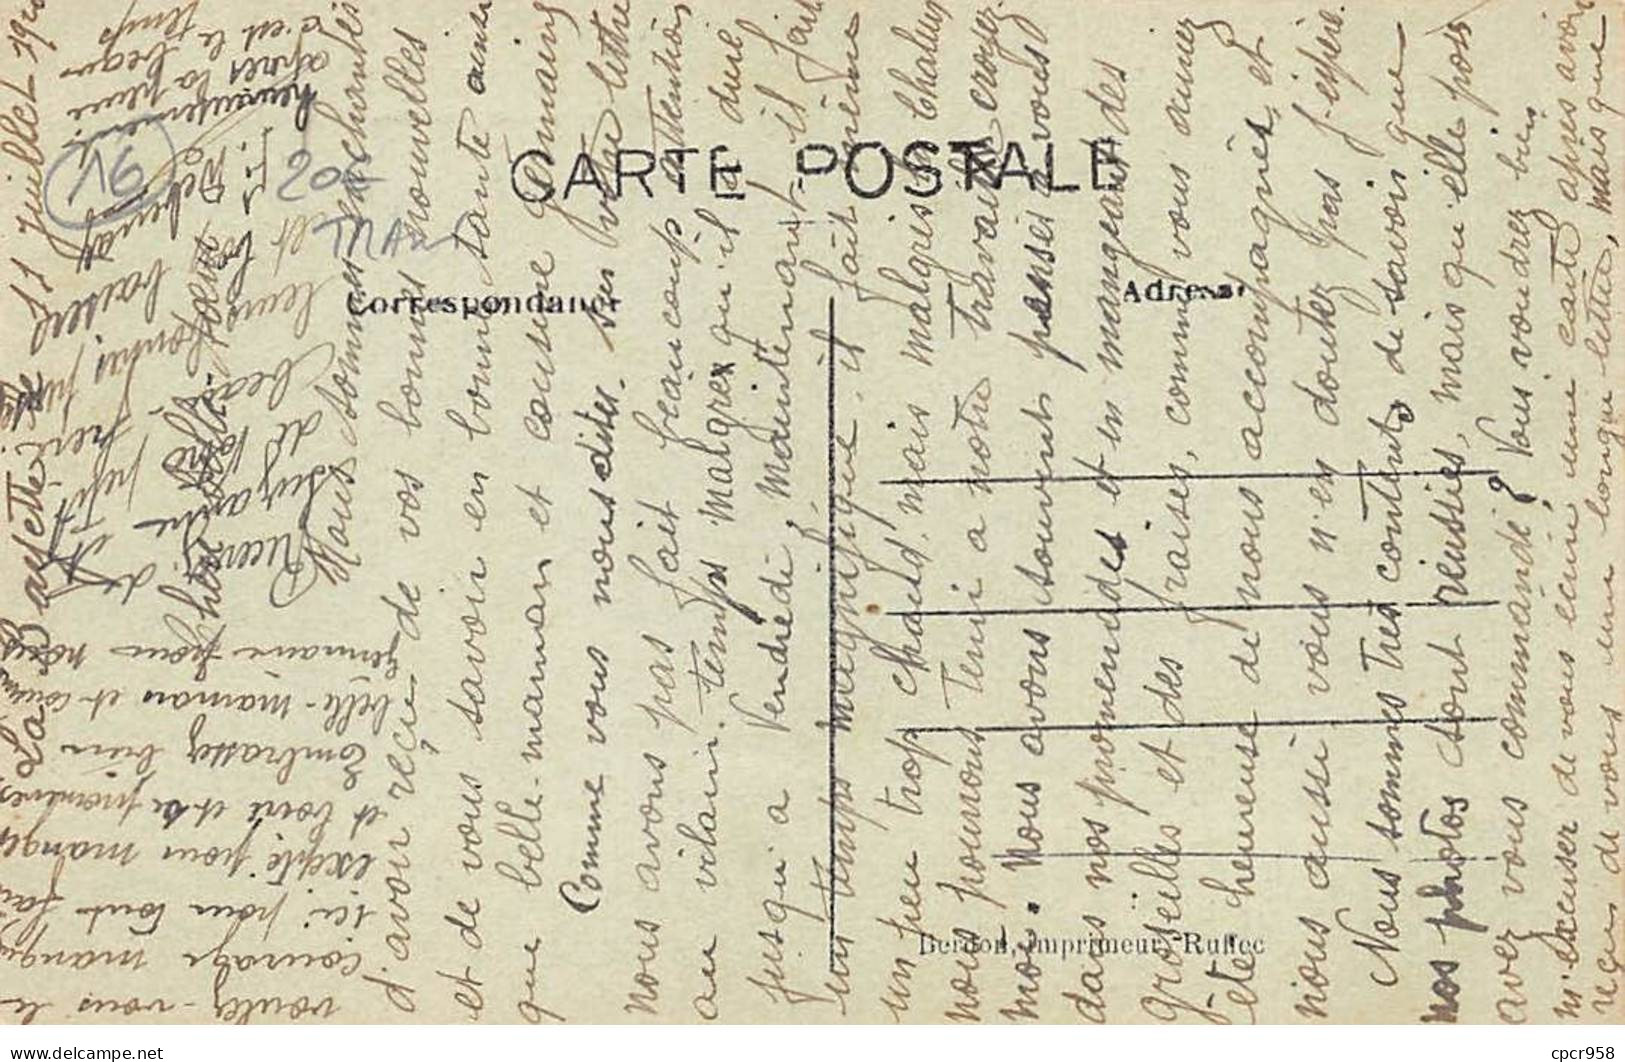 CARTE POSTALE
Correspondance
Adresse
Berdon, imprimeur, Ruffec
16
20E
TRAM
La Bassette 11 Juillet
Nous sommes enchantés
d'avoir reçue de vos bonnes nouvelles
et de vous savoir en bonne santé ainsi
que belle-maman et cousine Germaine
Comme vous nous dites, sur votre lettre
nous avons pas fait beaucoup attention
au vilain temps malgrex qu'il a duré
jusqu'à Vendredi, maintenant il fait
un temps magnifique, il fait même
un peu trop chaud, mais malgrès la chaleur
nous pouvons tenir a notre travail, croyez
moi. Nous avons souvent penser a vous
dans nos promenades et en mangeant des
groseilles et des fraises, comme vous aimez
été heureuse de nous accompagnés, et
nous aussi vous n'en doutez pas j'espère.
Nous sommes très contents de savoir que
nos photos sont réussies, mais qu'elle pose
avez vous commandé? Vous voudrez bien
m'excuser de vous écrire une carte après avoir
reçu de vous une longue lettre, mais que
voulez-vous le
courage manque
ici pour tout faire
excepté pour manger
et boire et se promener
Embrassez bien
belle-maman et cousine
Germaine pour nous
Recevez
de
Suzanne
et petit frère
leurs
baisers
P.S.
heureusement
après la pluie
c'est le beau
temps
cpcr958